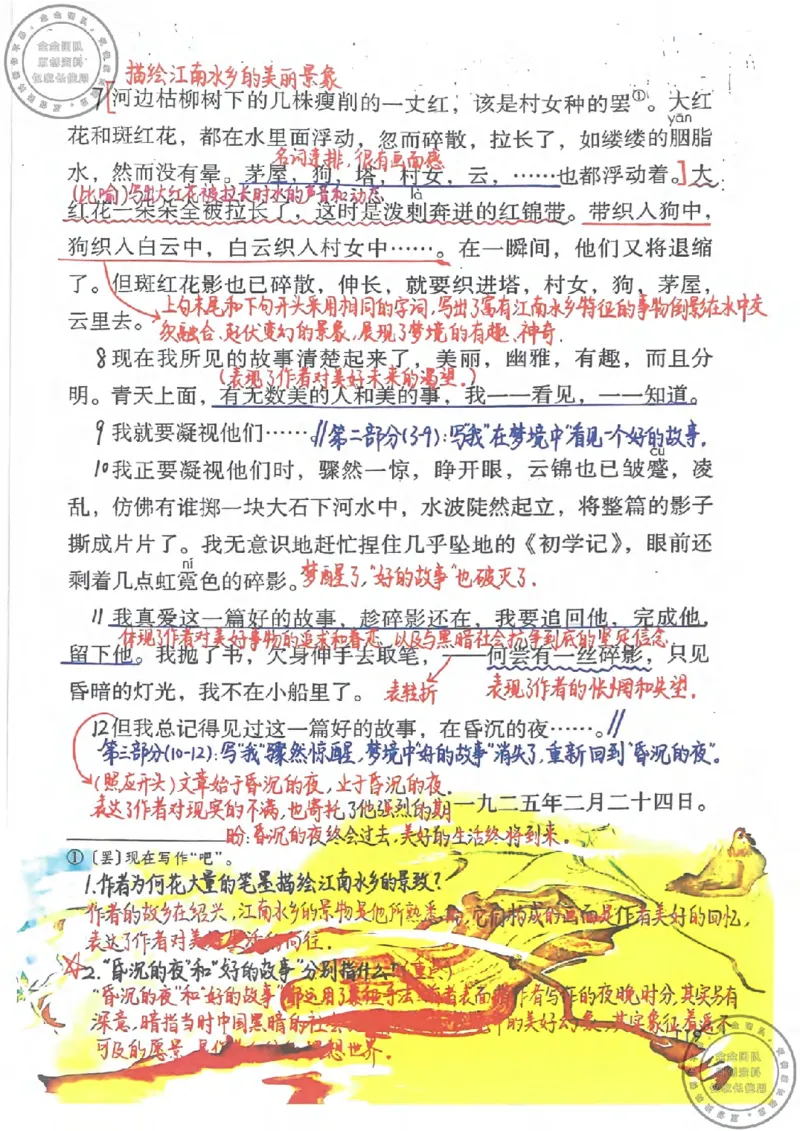 企企团队
原创资料
仅家长使用
描绘江南水乡的美丽景象
7[河边枯柳树下的几株瘦削的一丈红，该是村女种的罢①。大红
yān
花和斑红花，都在水里面浮动，忽而碎散，拉长了，如缕缕的胭脂
名词连排，很有画面感
水，然而没有晕。茅屋，狗，塔，村女，云，……也都浮动着。]大
(比喻)写出大红花被拉长时水的声音和动态
là
红花一朵朵全被拉长了，这时是泼剌奔迸的红锦带。带织入狗中，
狗织入白云中，白云织入村女中……。在一瞬间，他们又将退缩
了。但斑红花影也已碎散，伸长，就要织进塔，村女，狗，茅屋，
上句末尾和下句开头采用相同的字词，写出了富有江南水乡特征的事物倒影在水中交
云里去。
次融合、起伏变幻的景象，展现了梦境的有趣、神奇.
8现在我所见的故事清楚起来了，美丽，幽雅，有趣，而且分
(表现了作者对美好未来的渴望.)
明。青天上面，有无数美的人和美的事，我一一看见，一一知道。
9我就要凝视他们……//第二部分(3-9)：写"我"在梦境中"看见一个好的故事.
cù
10我正要凝视他们时，骤然一惊，睁开眼，云锦也已皱蹙，凌
乱，仿佛有谁掷一块大石下河水中，水波陡然起立，将整篇的影子
撕成片片了。我无意识地赶忙捏住几乎坠地的《初学记》，眼前还
ní
剩着几点虹霓色的碎影。梦醒了，"好的故事"也破灭了.
11我真爱这一篇好的故事，趁碎影还在，我要追回他，完成他，
体现了作者对美好事物的追求和眷恋，以及与黑暗社会抗争到底的坚定信念.
留下他。我抛了书，欠身伸手去取笔，——何尝有一丝碎影，只见
昏暗的灯光，我不在小船里了。 表转折 表现了作者的怅惘和失望.
12但我总记得见过这一篇好的故事，在昏沉的夜……。//
第三部分(10-12)：写"我"骤然惊醒，梦境中"好的故事"消失了，重新回到"昏沉的夜"。
(照应开头)文章始于昏沉的夜，止于昏沉的夜.
表达了作者对现实的不满，也寄托了他强烈的期
一九二五年二月二十四日。
盼：昏沉的夜终会过去，美好的生活终将到来.
①〔罢〕现在写作"吧"。
1.作者为何花大量的笔墨描绘江南水乡的景致?
作者的故乡在绍兴，江南水乡的景物是他所熟悉的，它们构成的画面是作者美好的回忆，
表达了作者对美好生活的向往.
☆2."昏沉的夜"和"好的故事"分别指什么?(重点)
"昏沉的夜"和"好的故事"都运用了象征手法，前者表面指作者写作的夜晚时分，其实另有
深意，暗指当时中国黑暗的社会 的美好幻象，其实象征着遥不
可及的愿景，是作 想世界.
119
企企团队
原创资料
仅家长使用